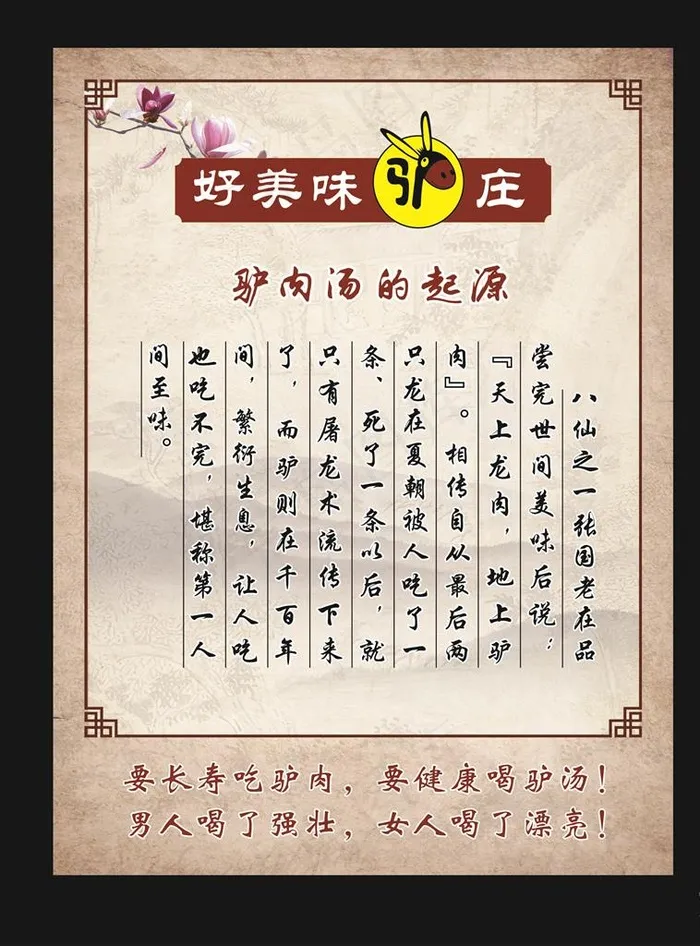 好美味驴庄
驴肉汤的起源
八仙之一张国老在品
尝完世间美味后说：
『天上龙肉，地上驴
肉』。相传自从最后两
只龙在夏朝被人吃了一
条、死了一条以后，就
只有屠龙术流传下来
了，而驴则在千百年
间，繁衍生息，让人吃
也吃不完，堪称第一人
间至味。
要长寿吃驴肉，要健康喝驴汤！
男人喝了强壮，女人喝了漂亮！